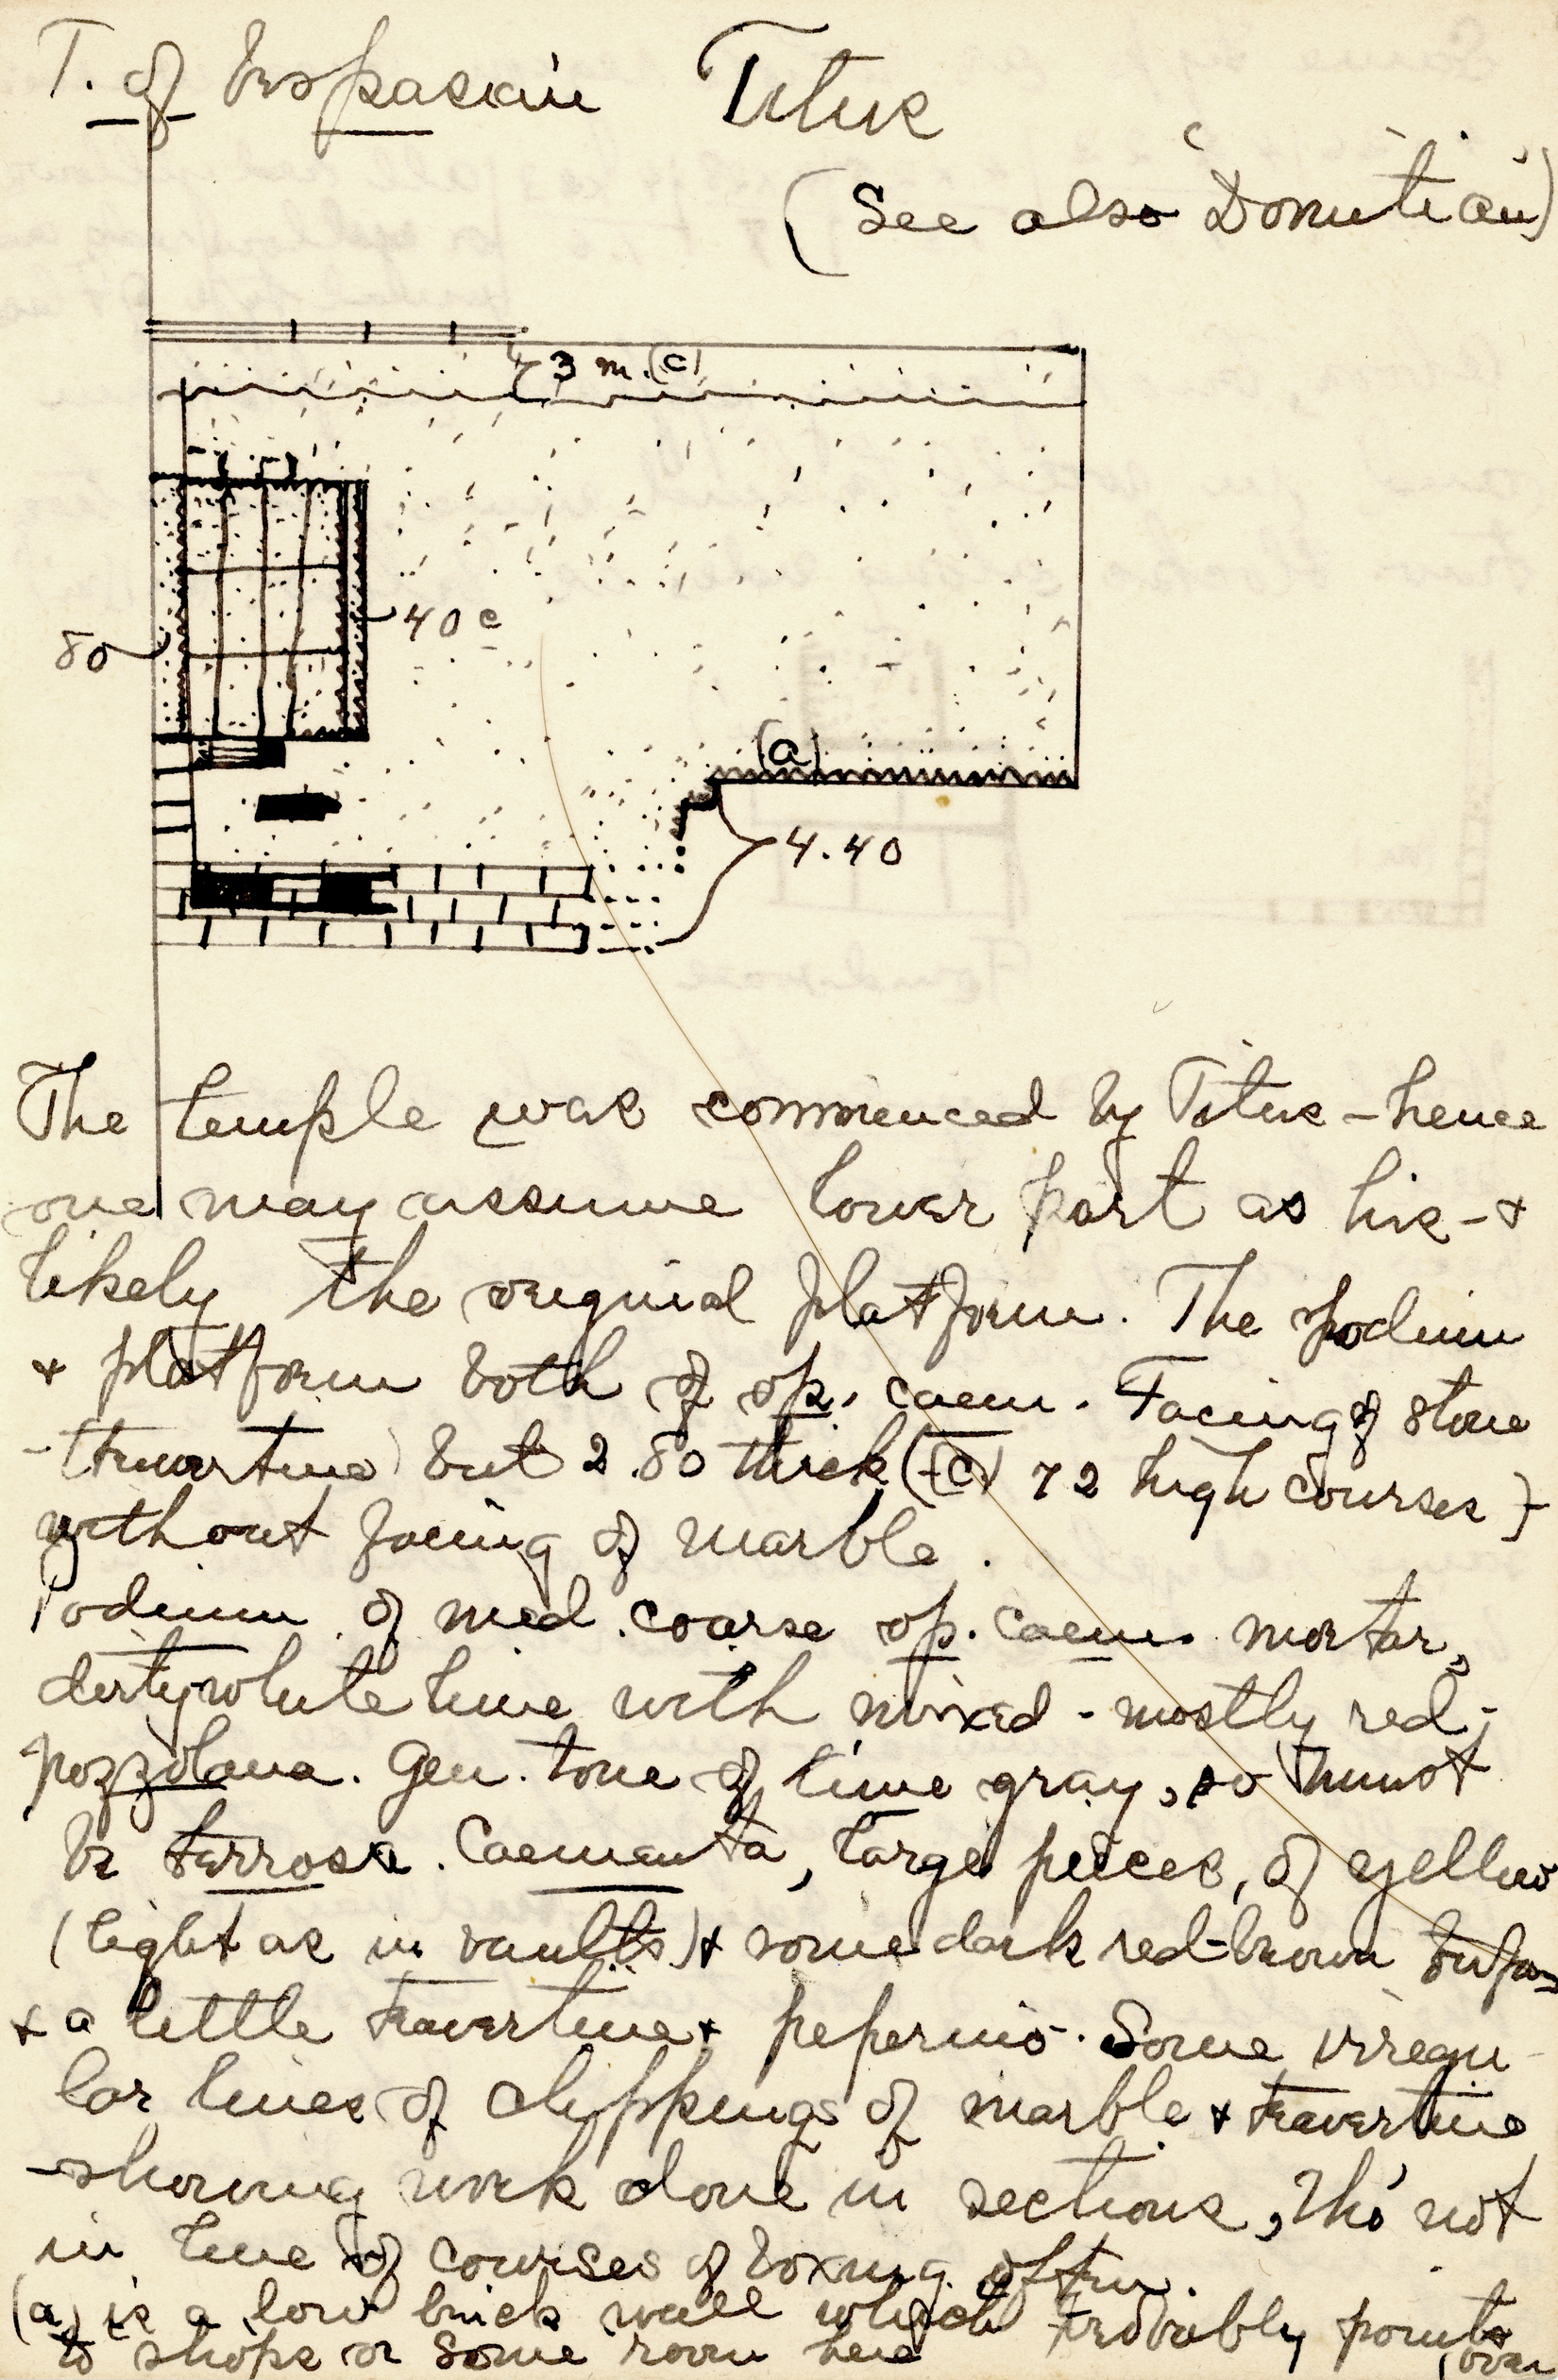 T. of Vespasian Titus
(See also Domitian)
3 m. (c)
40 c
80
(a)
4.40
The temple was commenced by Titus - hence
one may assume lower part as his - &
likely the original platform. The podium
& platform both of op. caem. Facing of stone
- travertine) but 2.80 thick (c) 72 high courses }
without facing of marble.
Podium of med. coarse op. caem. mortar,
dirty white lime with mixed - mostly red -
pozzolana. Gen. tone of lime gray, so must
be terrosa. Caementa, large pieces, of yellow
(light as in vaults) & some dark red-brown tufas
& a little travertine & peperino. Some irregu-
lar lines of chippings of marble & travertine
- showing work done in sections, tho' not
in line of courses of boxing often.
(a) is a low brick wall which probably points
to shops or some room here (over